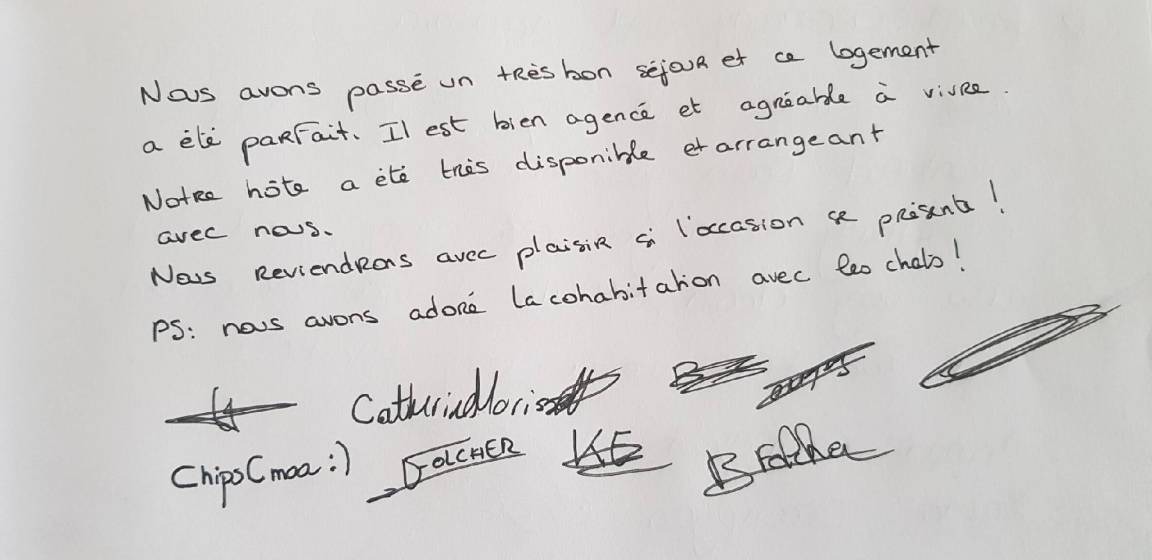 Nous avons passé un très bon séjour et ce logement
a été parfait. Il est bien agencé et agréable à vivre.
Notre hôte a été très disponible et arrangeant
avec nous.
Nous reviendrons avec plaisir si l'occasion se présente !
PS: nous avons adoré la cohabitation avec les chats !
ChipsCmoa :) FOLCHER